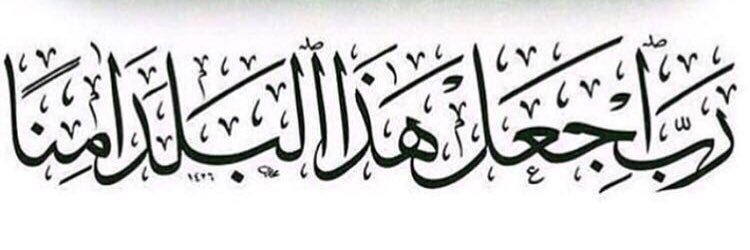 رَبِّ اجْعَلْ هَذَا الْبَلَدَ آمِنًا
١٤٢٦